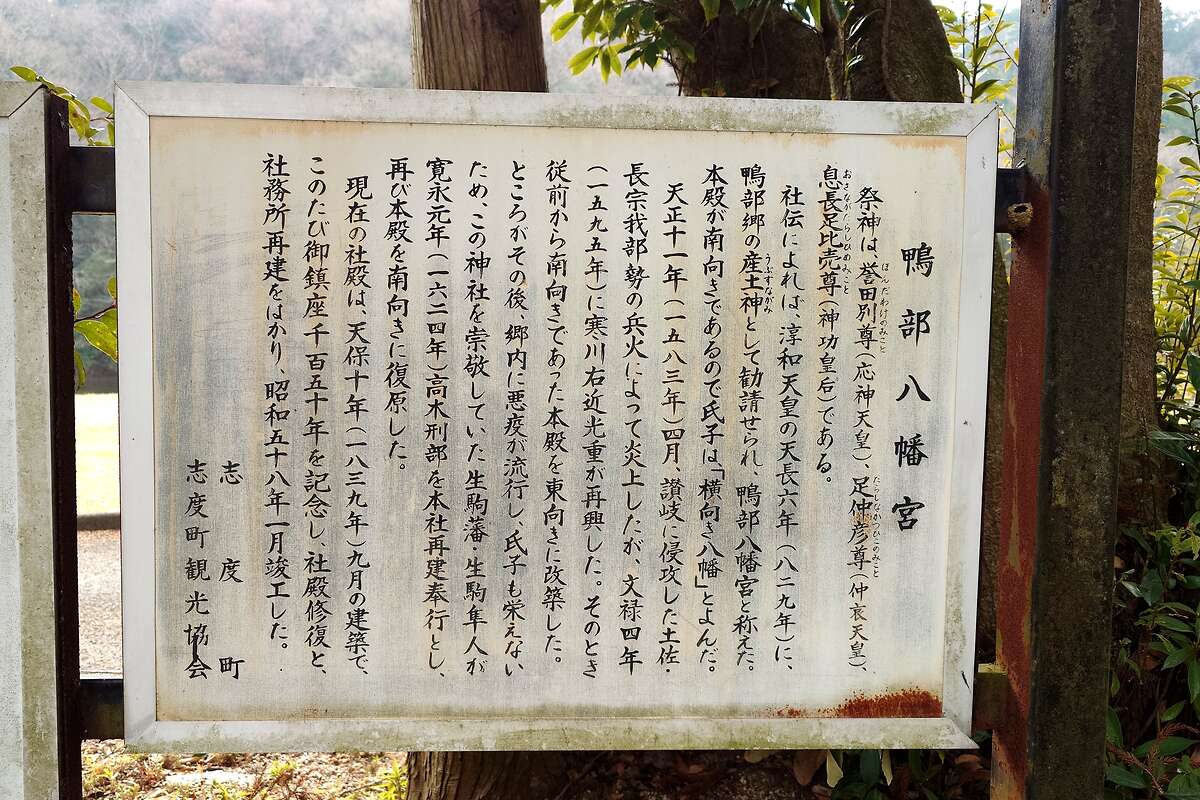 鴨部八幡宮
祭神は、誉田別尊（応神天皇）、足仲彦尊（仲哀天皇）、
ほんだわけのみこと
たらしなかつひこのみこと
息長足比売尊（神功皇后）である。
おきながたらしひめのみこと
社伝によれば、淳和天皇の天長六年（八二九年）に、
鴨部郷の産土神として勧請せられ、鴨部八幡宮と称えた。
うぶすながみ
本殿が南向きであるので氏子は「横向き八幡」とよんだ。
天正十一年（一五八三年）四月、讃岐に侵攻した土佐・
長宗我部勢の兵火によって炎上したが、文禄四年
（一五九五年）に寒川右近光重が再興した。そのとき
従前から南向きであった本殿を東向きに改築した。
ところがその後、郷内に悪疫が流行し、氏子も栄えない
ため、この神社を崇敬していた生駒藩・生駒隼人が
寛永元年（一六二四年）高木刑部を本社再建奉行とし、
再び本殿を南向きに復原した。
現在の社殿は、天保十年（一八三九年）九月の建築で、
このたび御鎮座千百五十年を記念し、社殿修復と、
社務所再建をはかり、昭和五十八年一月竣工した。
志度町
志度町観光協会